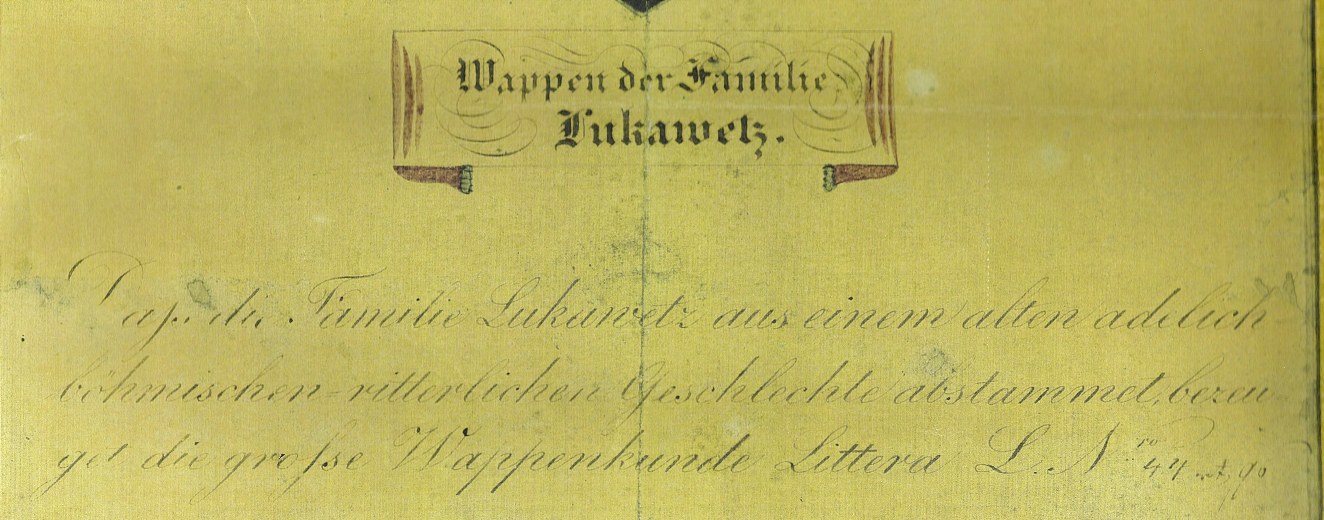 Wappen der Familie
Lukawetz.
Daß die Familie Lukawetz aus einem alten adelich
böhmischen-ritterlichen Geschlechte abstammet, bezeu
get die große Wappenkunde Littera L. Nro 44